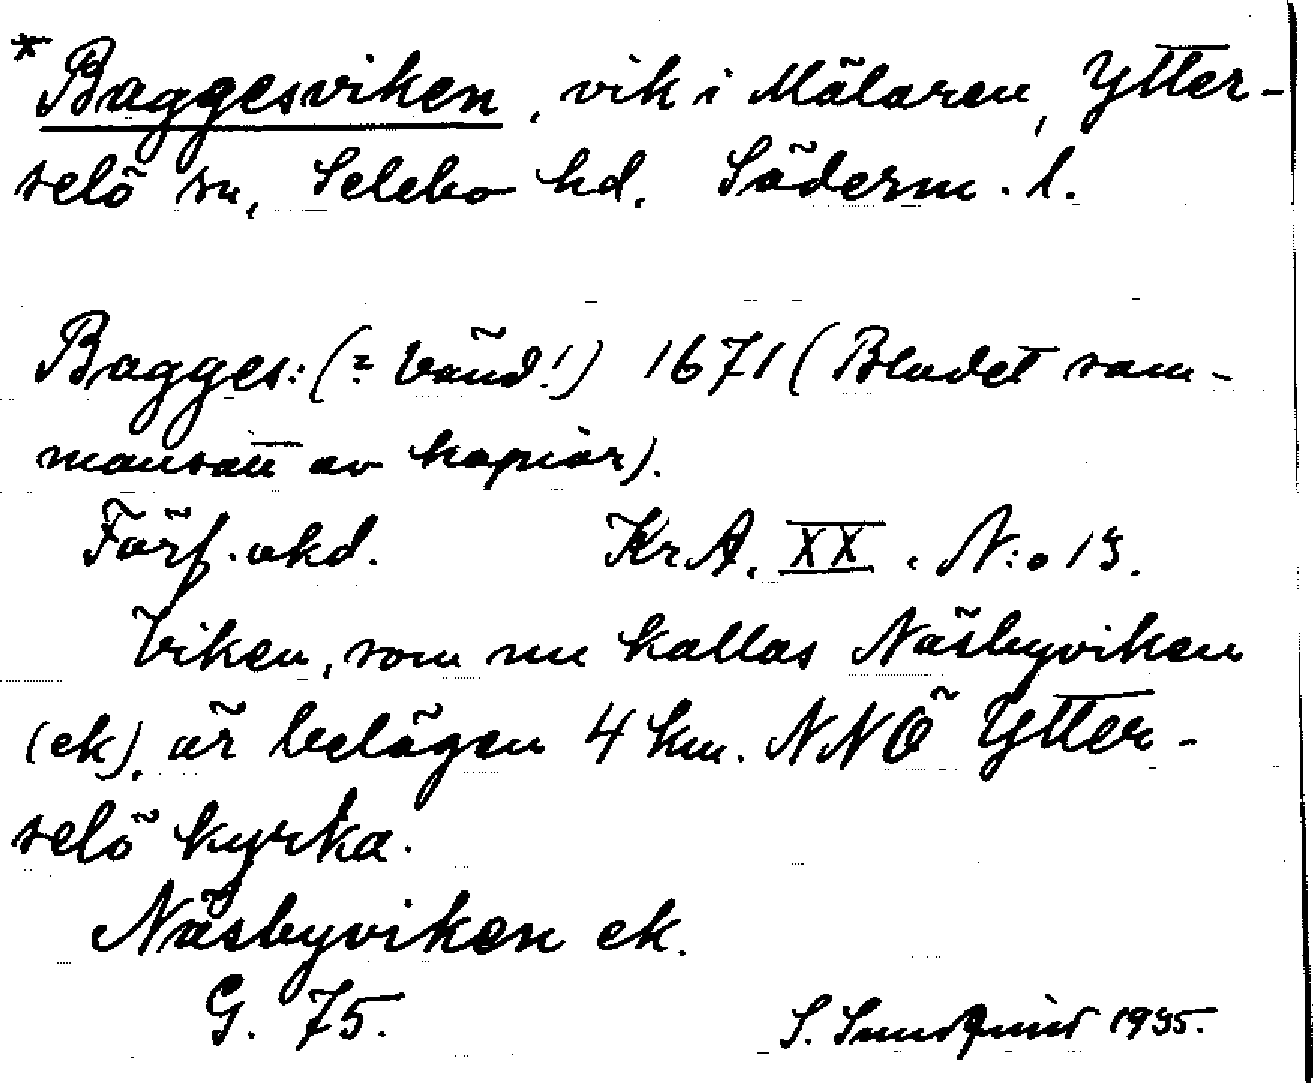 * Baggesviken, vik i Mälaren, Ytter-
selö sn, Selebo hd. Söderm. l.
Bagges: (= Vänd!) 1671 (Bladet sam-
mansatt av kopior).
Förf. okd. KrA. XX. N:o 13.
Viken, som nu kallas Näsbyviken
(ek), är belägen 4 km. NNÖ Ytter-
selö kyrka.
Näsbyviken ek.
G. 75.
S. Sundquist 1935.